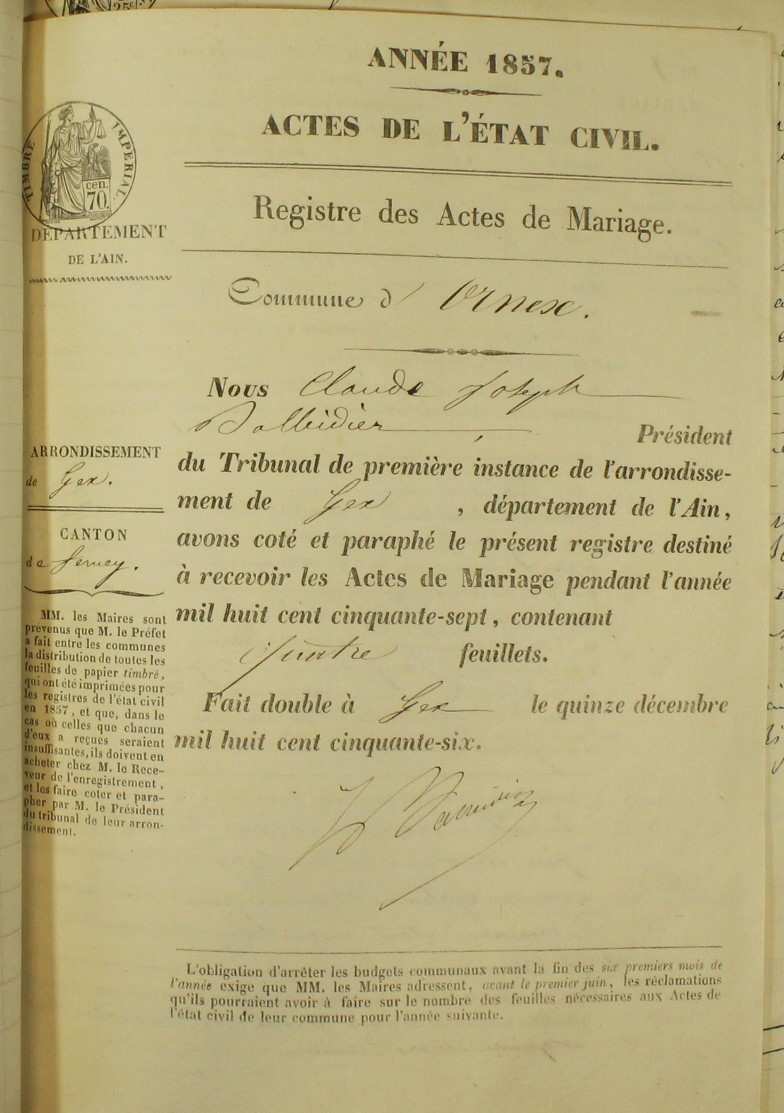 ANNÉE 1857.
ACTES DE L'ÉTAT CIVIL.
TIMBRE IMPERIAL.
cen.
70.
DÉPARTEMENT
DE L'AIN.
Registre des Actes de Mariage.
Commune d'Ornex.
Nous Claude Joseph
Président
du Tribunal de première instance de l'arrondisse-
ment de Gex, département de l'Ain,
avons coté et paraphé le présent registre destiné
à recevoir les Actes de Mariage pendant l'année
mil huit cent cinquante-sept, contenant
feuillets.
Fait double à Gex le quinze décembre
mil huit cent cinquante-six.
ARRONDISSEMENT
de Gex.
CANTON
de Ferney.
MM. les Maires sont
prévenus que M. le Préfet
a fait entre les communes
la distribution de toutes les
feuilles de papier timbré,
qui ont été imprimées pour
les registres de l'état civil
en 1857, et que, dans le
cas où celles que chacun
d'eux a reçues seraient
insuffisantes, ils doivent en
acheter chez M. le Rece-
veur de l'enregistrement,
et les faire coter et para-
pher par M. le Président
du tribunal de leur arron-
dissement.
L'obligation d'arrêter les budgets communaux avant la fin des six premiers mois de
l'année exige que MM. les Maires adressent, avant le premier juin, les réclamations
qu'ils pourraient avoir à faire sur le nombre des feuilles nécessaires aux Actes de
l'état civil de leur commune pour l'année suivante.